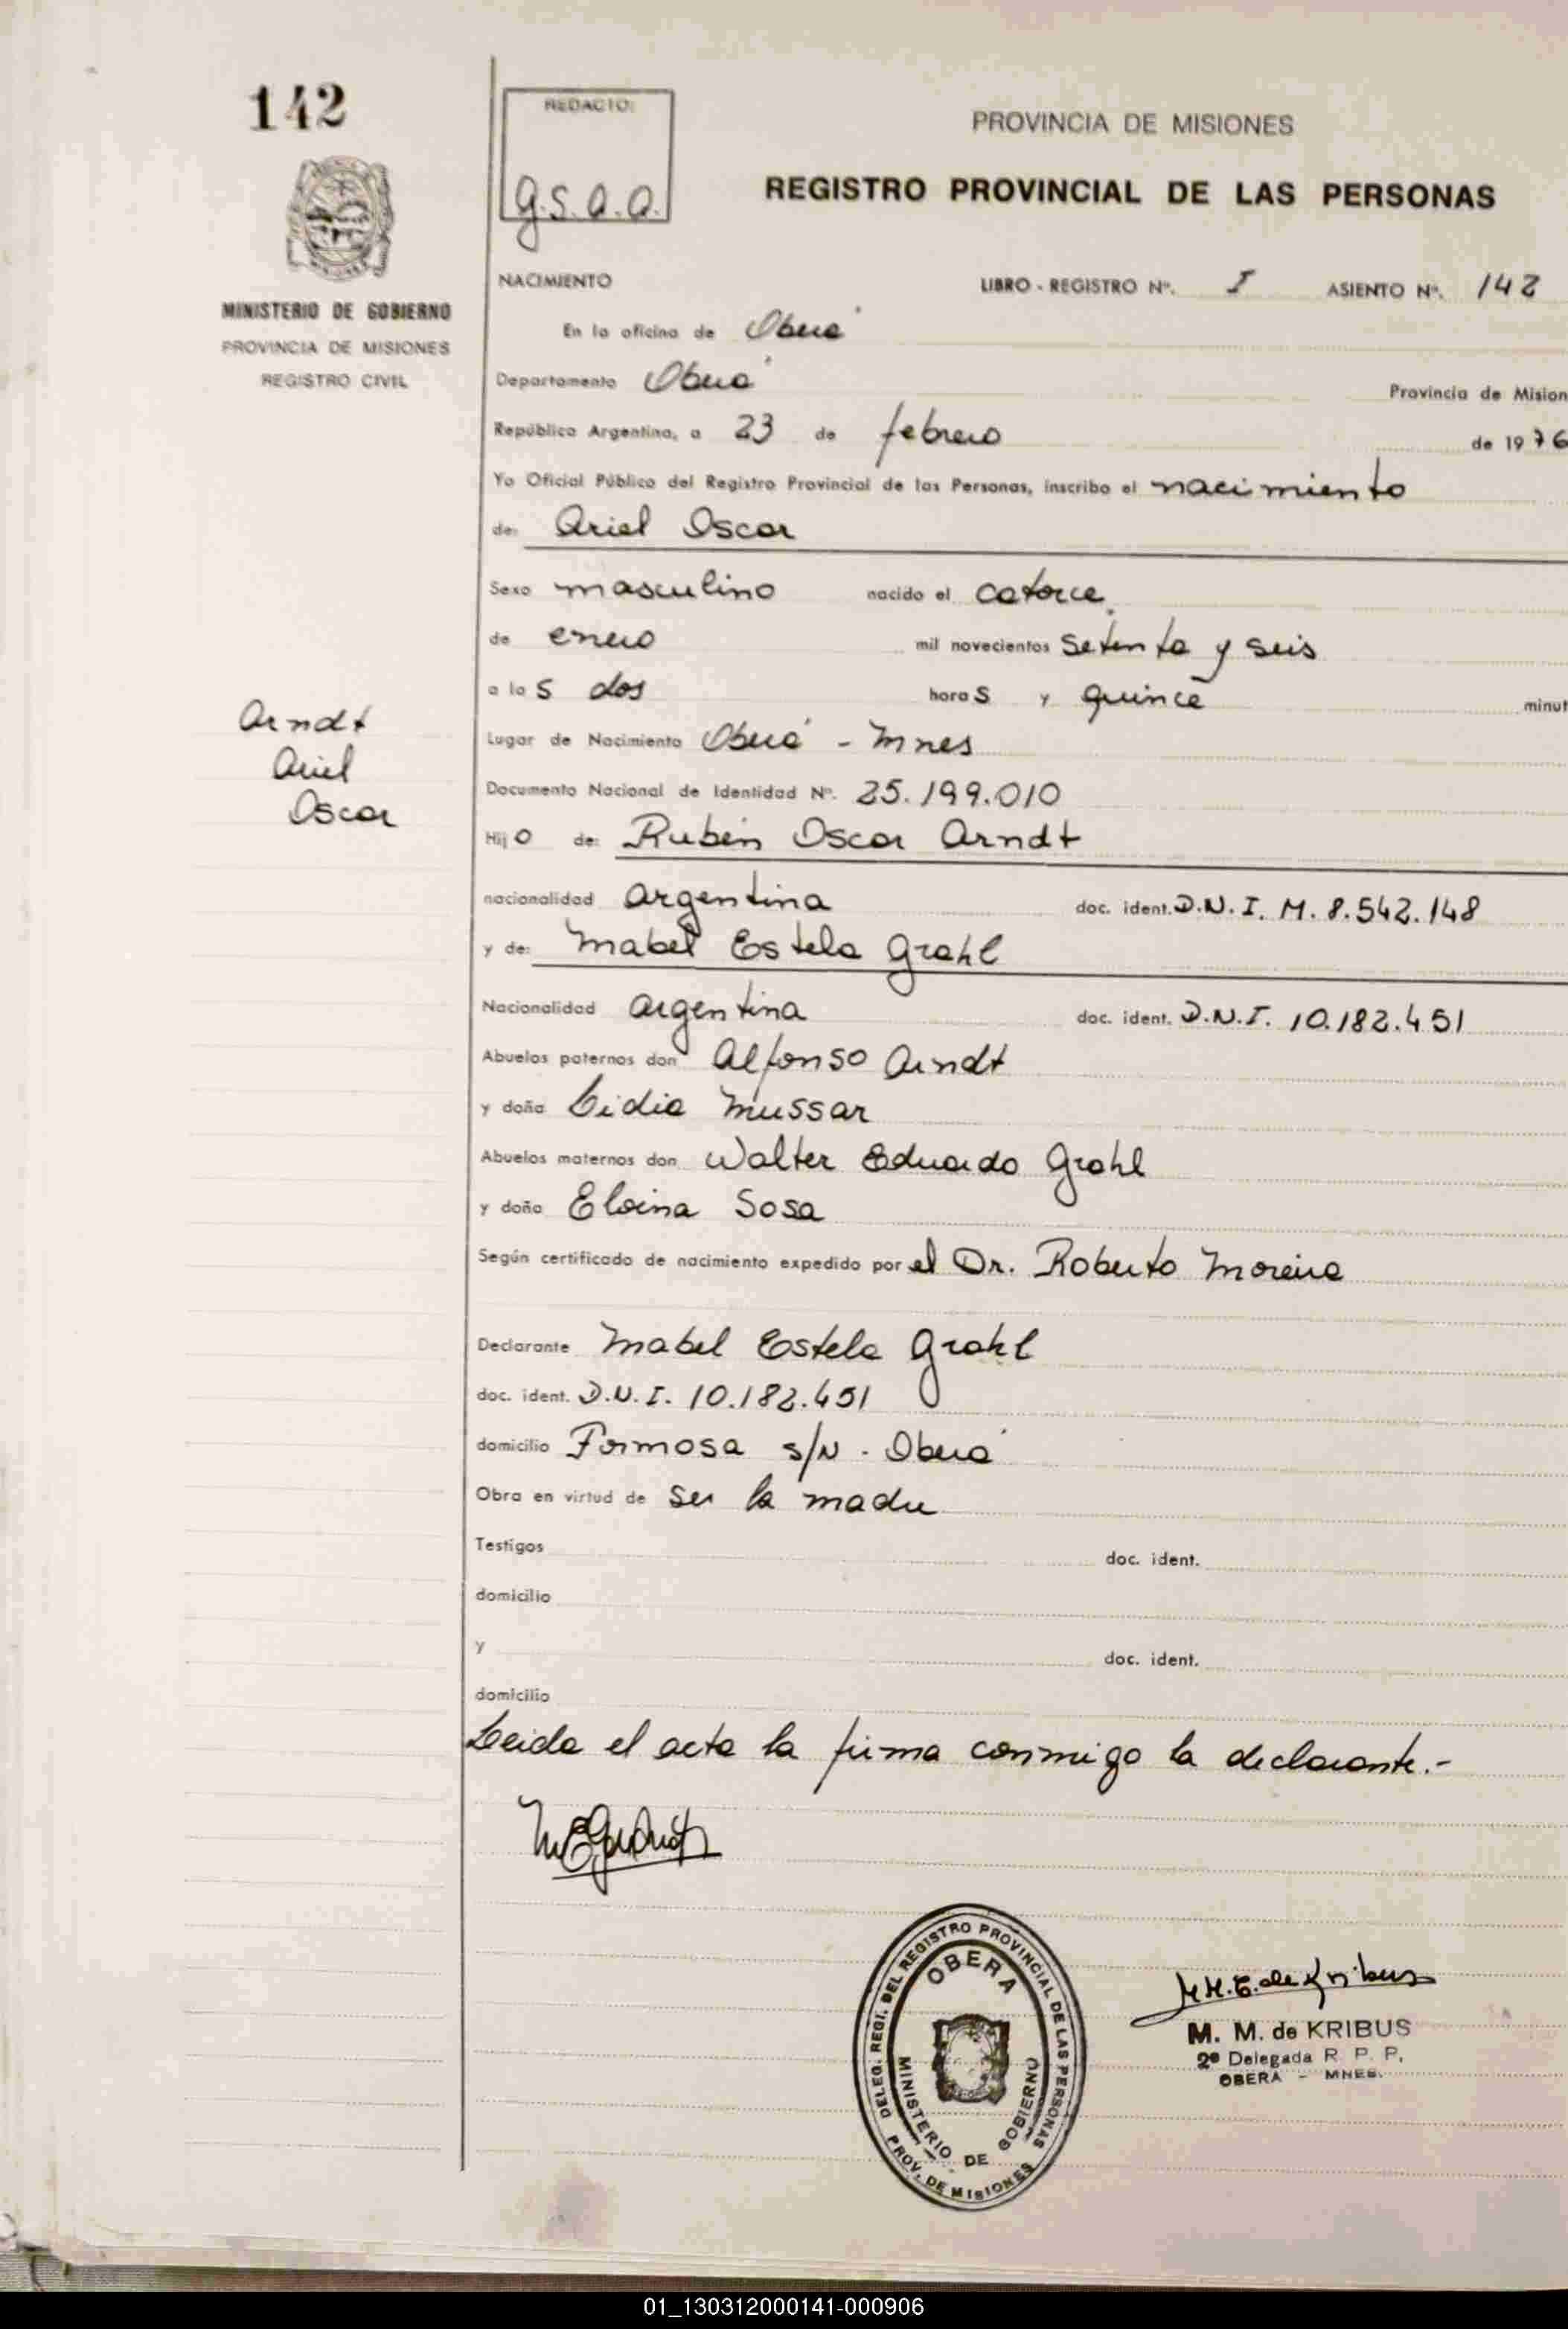 142
REDACTO:
g.s.a.a.
PROVINCIA DE MISIONES
REGISTRO PROVINCIAL DE LAS PERSONAS
MINISTERIO DE GOBIERNO
PROVINCIA DE MISIONES
REGISTRO CIVIL
NACIMIENTO LIBRO - REGISTRO Nº. I ASIENTO Nº. 142
En la oficina de Oberá
Departamento Oberá Provincia de Mision
República Argentina, a 23 de febrero de 1976
Yo Oficial Público del Registro Provincial de las Personas, inscribo el nacimiento
de: Ariel Oscar
Sexo masculino nacido el catorce
de enero mil novecientos setenta y seis
a las dos horas y quince minut
Arndt
Ariel
Oscar
Lugar de Nacimiento Oberá - Mnes
Documento Nacional de Identidad Nº. 25.199.010
Hijo de: Rubén Oscar Arndt
nacionalidad argentina doc. ident. D.N.I. M. 8.542.148
y de: Mabel Estela Grahl
Nacionalidad argentina doc. ident. D.N.I. 10.182.451
Abuelos paternos don Alfonso Arndt
y doña Lidia Mussar
Abuelos maternos don Walter Eduardo Grahl
y doña Eloina Sosa
Según certificado de nacimiento expedido por el Dr. Roberto Moreira
Declarante Mabel Estela Grahl
doc. ident. D.N.I. 10.182.451
domicilio Formosa s/N - Oberá
Obra en virtud de ser la madre
Testigos doc. ident.
domicilio
y doc. ident.
domicilio
Leida el acta la firma conmigo la declarante.-
DELEG. REGI. DEL REGISTRO PROVINCIAL DE LAS PERSONAS
OBERA
MINISTERIO DE GOBIERNO
PROV. DE MISIONES
M. M. de Kribus
M. M. de KRIBUS
2º Delegada R. P. P.
OBERA - MNES.
01_130312000141-000906